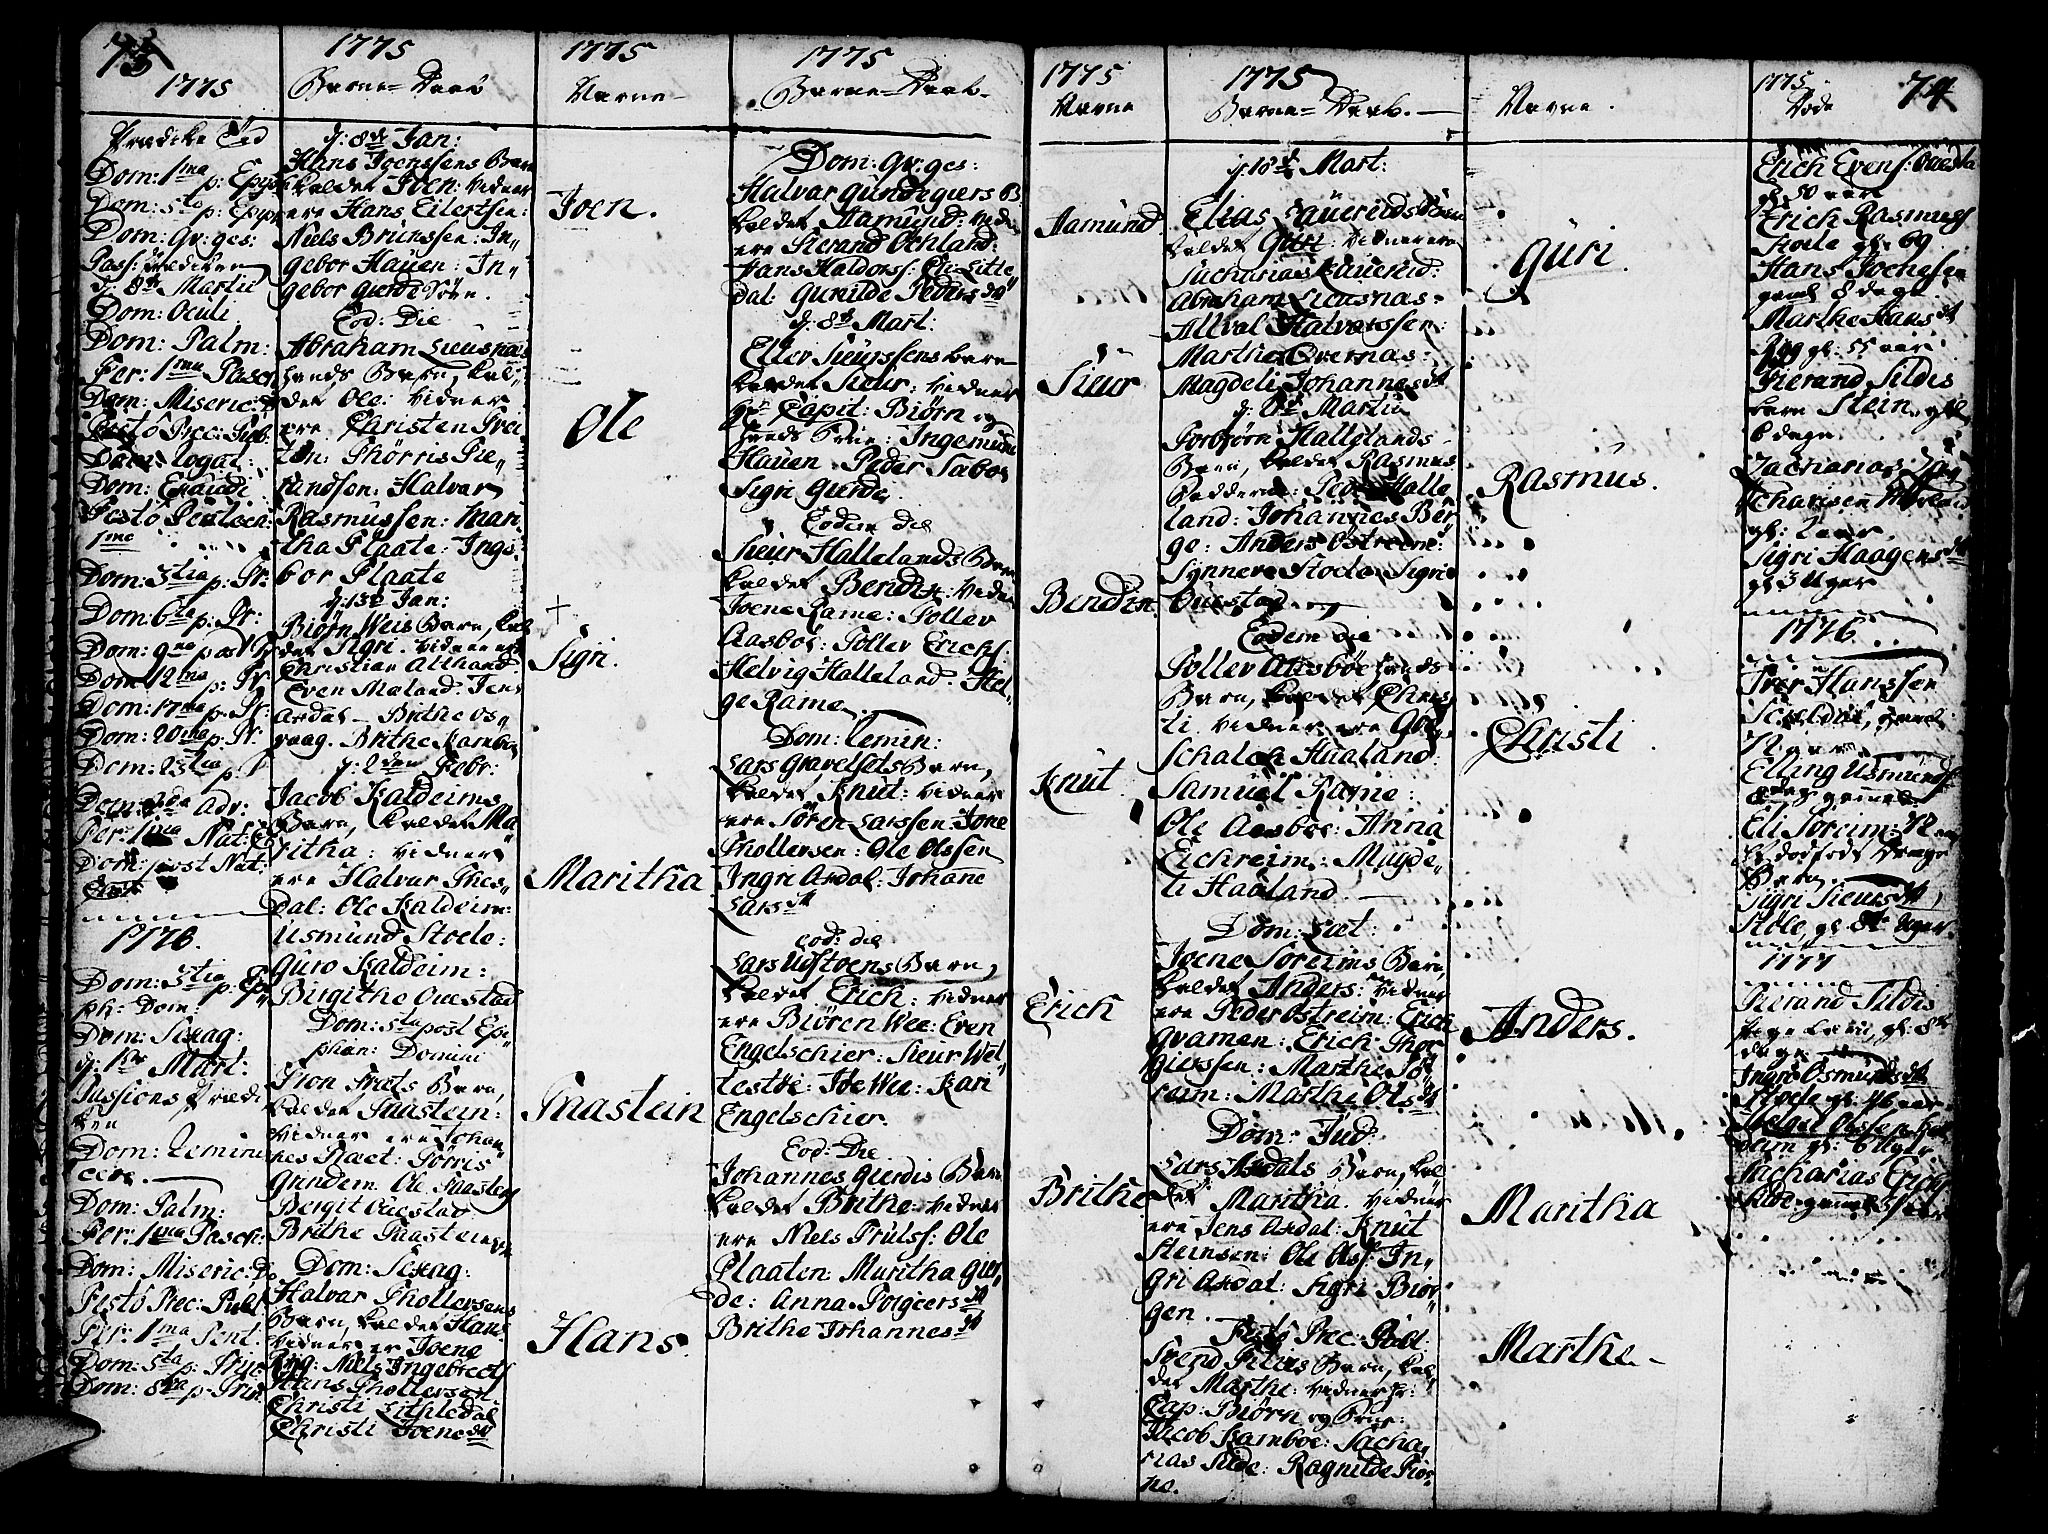 73
1775
Dom: 1ma p: Epiph
Dom: 5ta p: Epip
Dom: Qv: ges:
d: 8de Martii
Dom: Oculi
Dom: Palm:
Fer: 1ma Pasch
Dom: Miseric: D
Festo Prec: Publ:
Dom: Rogat:
Dom: Exaudi
Festo Pentecos:
1me
Dom: 3tia p: Tr:
Dom: 6ta p: Tr:
Dom: 9na post Tr
Dom 12ma p: Tr
Dom: 17ma p: Tr:
Dom: 20ma p: Tr:
Dom: 23tia p: T
Dom: 2da Adv:
Fer: 1ma Nat: C
Dom: post Nat:
1776.
Dom: 3tia p: Epi
ph: Dom:
Dom: Sexag:
d: 1ste Mart:
Passions Prædi
ken
Dom: Remini
cere.
Dom: Palm:
Fer: 1ma Pasch:
Dom: Miseric: D.
Festo Prec: Publ
Fer: 1ma Pent:
Dom: 5ta p: Trin
Dom: 8va p: Trin
1775
Barne= Daab
d: 8de Jan:
Hans Joenssens Barn
kaldet Joen: vidner
ere Hans Eilertsen:
Niels Brunssen: In-
gebor Hauen: In-
gebor Gierde
Eod: Die
Abraham Liensnæs
hands Barn, kal-
det Ole: vidner
ere Christen Trei
ten: Thørris Tie-
randsen: Halvar
Rasmussen: Mari
tha Plaate: Inge
bor Plaate
d: 13de Jan:
Biørn Weis Barn, kal
det Sigri. vidner ere
Christian Althand
Even Mæland: Jens
Axdal - Brithe Os-
vaag. Brithe Kambo
d: 2den Febr:
Jacob Kaldeims
Barn, kaldet Ma
ritha: vidner
ere Halvar Thes-
Dal: Ole Kaldeim:
Usmund Stoele:
Guro Kaldeim:
Birgithe Ouestad
Dom: 5ta post Epi-
phan: Domini
Barn,
kaldet Taastein:
vidner ere Johan
nes Ræet: Tørris
Grindem: Ole Saastey
Bergit Ouestad
Brithe Taastein
Dom: Sexag:
Halvar Thollersens
Barn, kaldet Hans
vidner er Joene
Ryg: Niels Ingebrects
Hans Thollersen
Christi Litsledal
Christi Joensdr
1775
Navne-
Joen.
Ole
+
Sigri.
Maritha
Taastein
Hans.
1775
Barne= Daab.
Dom: Qv: ges:
Halvar Gundegiers B.
kaldet Aamund: vidn
ere Sierand Ochland:
Hans Haldorss: Ele: Litle
dal: Gunilde Pedersdr
d: 8de Mart:
Eller Sieurssens barn
kaldet Sieur: vidner
Hr Capit: Biørn og
hands Frue: Ingemunn
Hauen: Peder Sabøe
Sigri Gierde
Eodem die
Sieur Hallelands Barn
kaldet Bendix: vidn
Joene Rame: Toller
Aasboe: Toller Erichs:
Helvig Halleland: Hel-
ge Rame.
Dom: Remin:
Lars Gravelsæts Barn,
kaldet Knut: vidner
ere Søren Larssen: Jone
Thollevsen: Ole Olssen
Ingri Axdal: Johane
Larsdr
eod: die
Lars Udstvens Barn,
kaldet Erich: vidner
ere Biøren Wee: Even
Engelschier: Sieur Wel-
lestve: Ide Wee: Kari
Engelschier.
Eod: Die
Johannes Gierdis Barn
kaldet Brithe: vidner
ere Niels Trulss: Ole
Plaaten: Maritha Gier-
de: Anna Torgiersdr
Brithe Johannesdr
1775
Navne
Aamund
Sieur
Bendix
Knut
Erich
Brithe
1775
Barne= Daab.
d: 18de Mart:
Elias Lauerids Barn
kaldet Guri: vidner ere
Zacharias Lauerid:
Abraham Liensnæs:
Allval Halvorssen:
Marthe Evernæs:
Magdeli Johannesdr
Martii
Torbiørn Hallelands
Barn, kaldet Rasmus
fadderne: Peder Halle
land: Johannes Bør
ge: Anders Østreim:
Synneve Stoele: Sigri
Ouestad
Eodem die
Toller Aasbøe hands
Barn, kaldet Chris-
ti. vidner ere Got-
schalch Haaland:
Samuel Rame:
Ole Aasboe: Anna
Eichreim: Magde-
li Haaland
Dom: Læt:
Joene Soreims Barn,
kaldet Anders: vidner
ere Peder Østreim: Erich
Qvamen: Erich Thor
giessen: Marthe So-
reim: Marthe Olsdr
Dom: Jud:
Lars Axdals Barn, kal-
det Maritha. vidner
ere Jens Axdal: Knut
Steinsen: Ole Ols: In-
gri Axdal: Sigri Biør-
gen.
Festo Prec: Publ.
Svend Sildes Barn, kal-
det Marthe: vidner Hr:
Cap: Biørn og Frue:
Jacob Kamboe: Sacha-
rias Silde: Ragnilde Tios-
ne.
Navne.
Guri
Rasmus.
Christi
Anders.
Maritha
Marthe
1775
Døde
74
Erich Evens: Ouesta
gl: 50 aar
Erich Rasmuss
Stoele gl: 69
Hans Joenssen
gaml 8 dage
Marthe Hansdr
Ryg gl: 55 aar
Sierand Sildis
barn Stein, gl:
6 dage
Zacharias
Sigri Haagensdr
gl 3 Uger
1776
Iver Hanssen
gaml
72 aar
Elling Usmunds
gaml
Eli Soreim: 72 aar
Et dødfødt Drenge
Barn.
Sigri Sieursdr
Støle, gl: 8te Uger.
1777
Sierand Sildis
dage
Ingri Osmundsdr
Stoele gl: 46 aar
Helge Olssen
deim gl: 6 Uger
Zacharias Erichs
Silde gammel